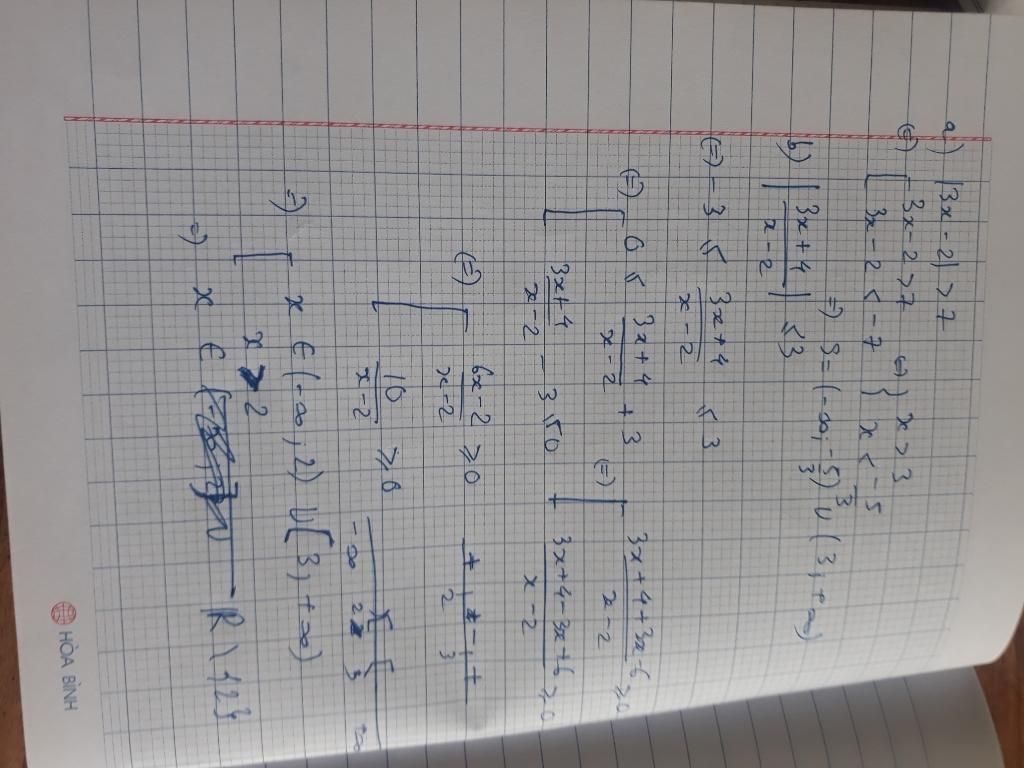 a) |3x-2| > 7
(=) [ 3x-2 > 7 (=) } x > 3
3x-2 < -7 } x < -5/3
=) S = (-∞; -5/3) ∪ (3, +∞)
b) | 3x+4 / x-2 | ≤ 3
(=) -3 ≤ 3x+4 / x-2 ≤ 3
(=) [ 0 ≤ 3x+4 / x-2 + 3 (=) [ 3x+4+3x-6 / x-2 ≥ 0
3x+4 / x-2 - 3 ≤ 0 3x+4-3x+6 / x-2 ≥ 0
(=) [ 6x-2 / x-2 ≥ 0 + - +
2 3
10 / x-2 ≥ 0
-∞ 2 3 ∞
=) [ x ∈ (-∞, 2) ∪ [3, +∞)
x > 2
=) x ∈ R \ {2}
HÒA BÌNH